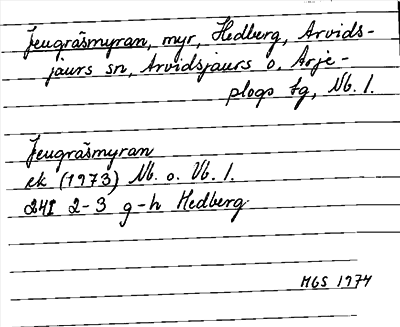 Jeugräsmyran, myr, Hedberg, Arvids-
jaurs sn, Arvidsjaurs o, Arje-
plogs tg, Nb. l.
Jeugräsmyran
ek (1973) Nb. o. Vb. l.
24I 2-3 g-h Hedberg
MGS 1974